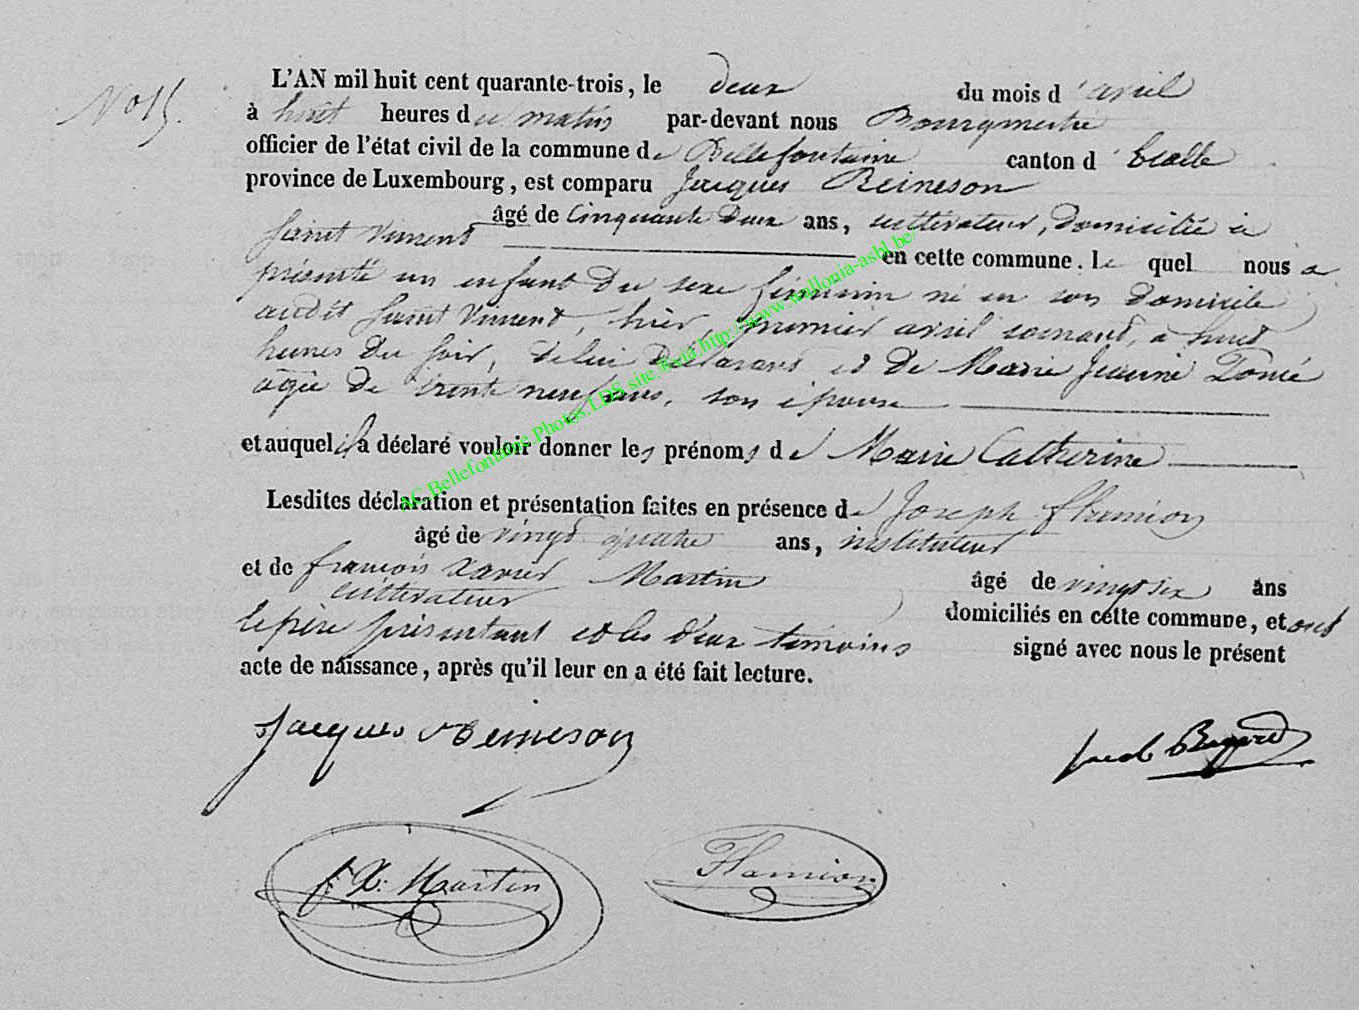 No 15.
L'AN mil huit cent quarante-trois, le deux du mois d'avril
à huit heures du matin par-devant nous Bourgmestre
officier de l'état civil de la commune de Bellefontaine canton d'Etalle
province de Luxembourg, est comparu Jacques Reineson
âgé de cinquante deux ans, cultivateur, domicilié à
Saint Vincent en cette commune. lequel nous a
présenté un enfant du sexe féminin né en son domicile
audit Saint Vincent, hier, premier avril courant, à huit
heures du soir, de lui déclarant et de Marie Jeanne Tomé
agée de trente neuf ans, son épouse
et auquel il a déclaré vouloir donner les prénoms de Marie Catherine
Lesdites déclaration et présentation faites en présence de Joseph Flamion
âgé de vingt quatre ans, instituteur
et de françois Xavier Martin âgé de vingt six ans
cultivateur domiciliés en cette commune, et ont
le père présentant et les deux témoins signé avec nous le présent
acte de naissance, après qu'il leur en a été fait lecture.
Jacques Reineson
f. X. Martin
Flamion
AC Bellefontaine Photos LDS site fs via http://www.wallonia-asbl.be/